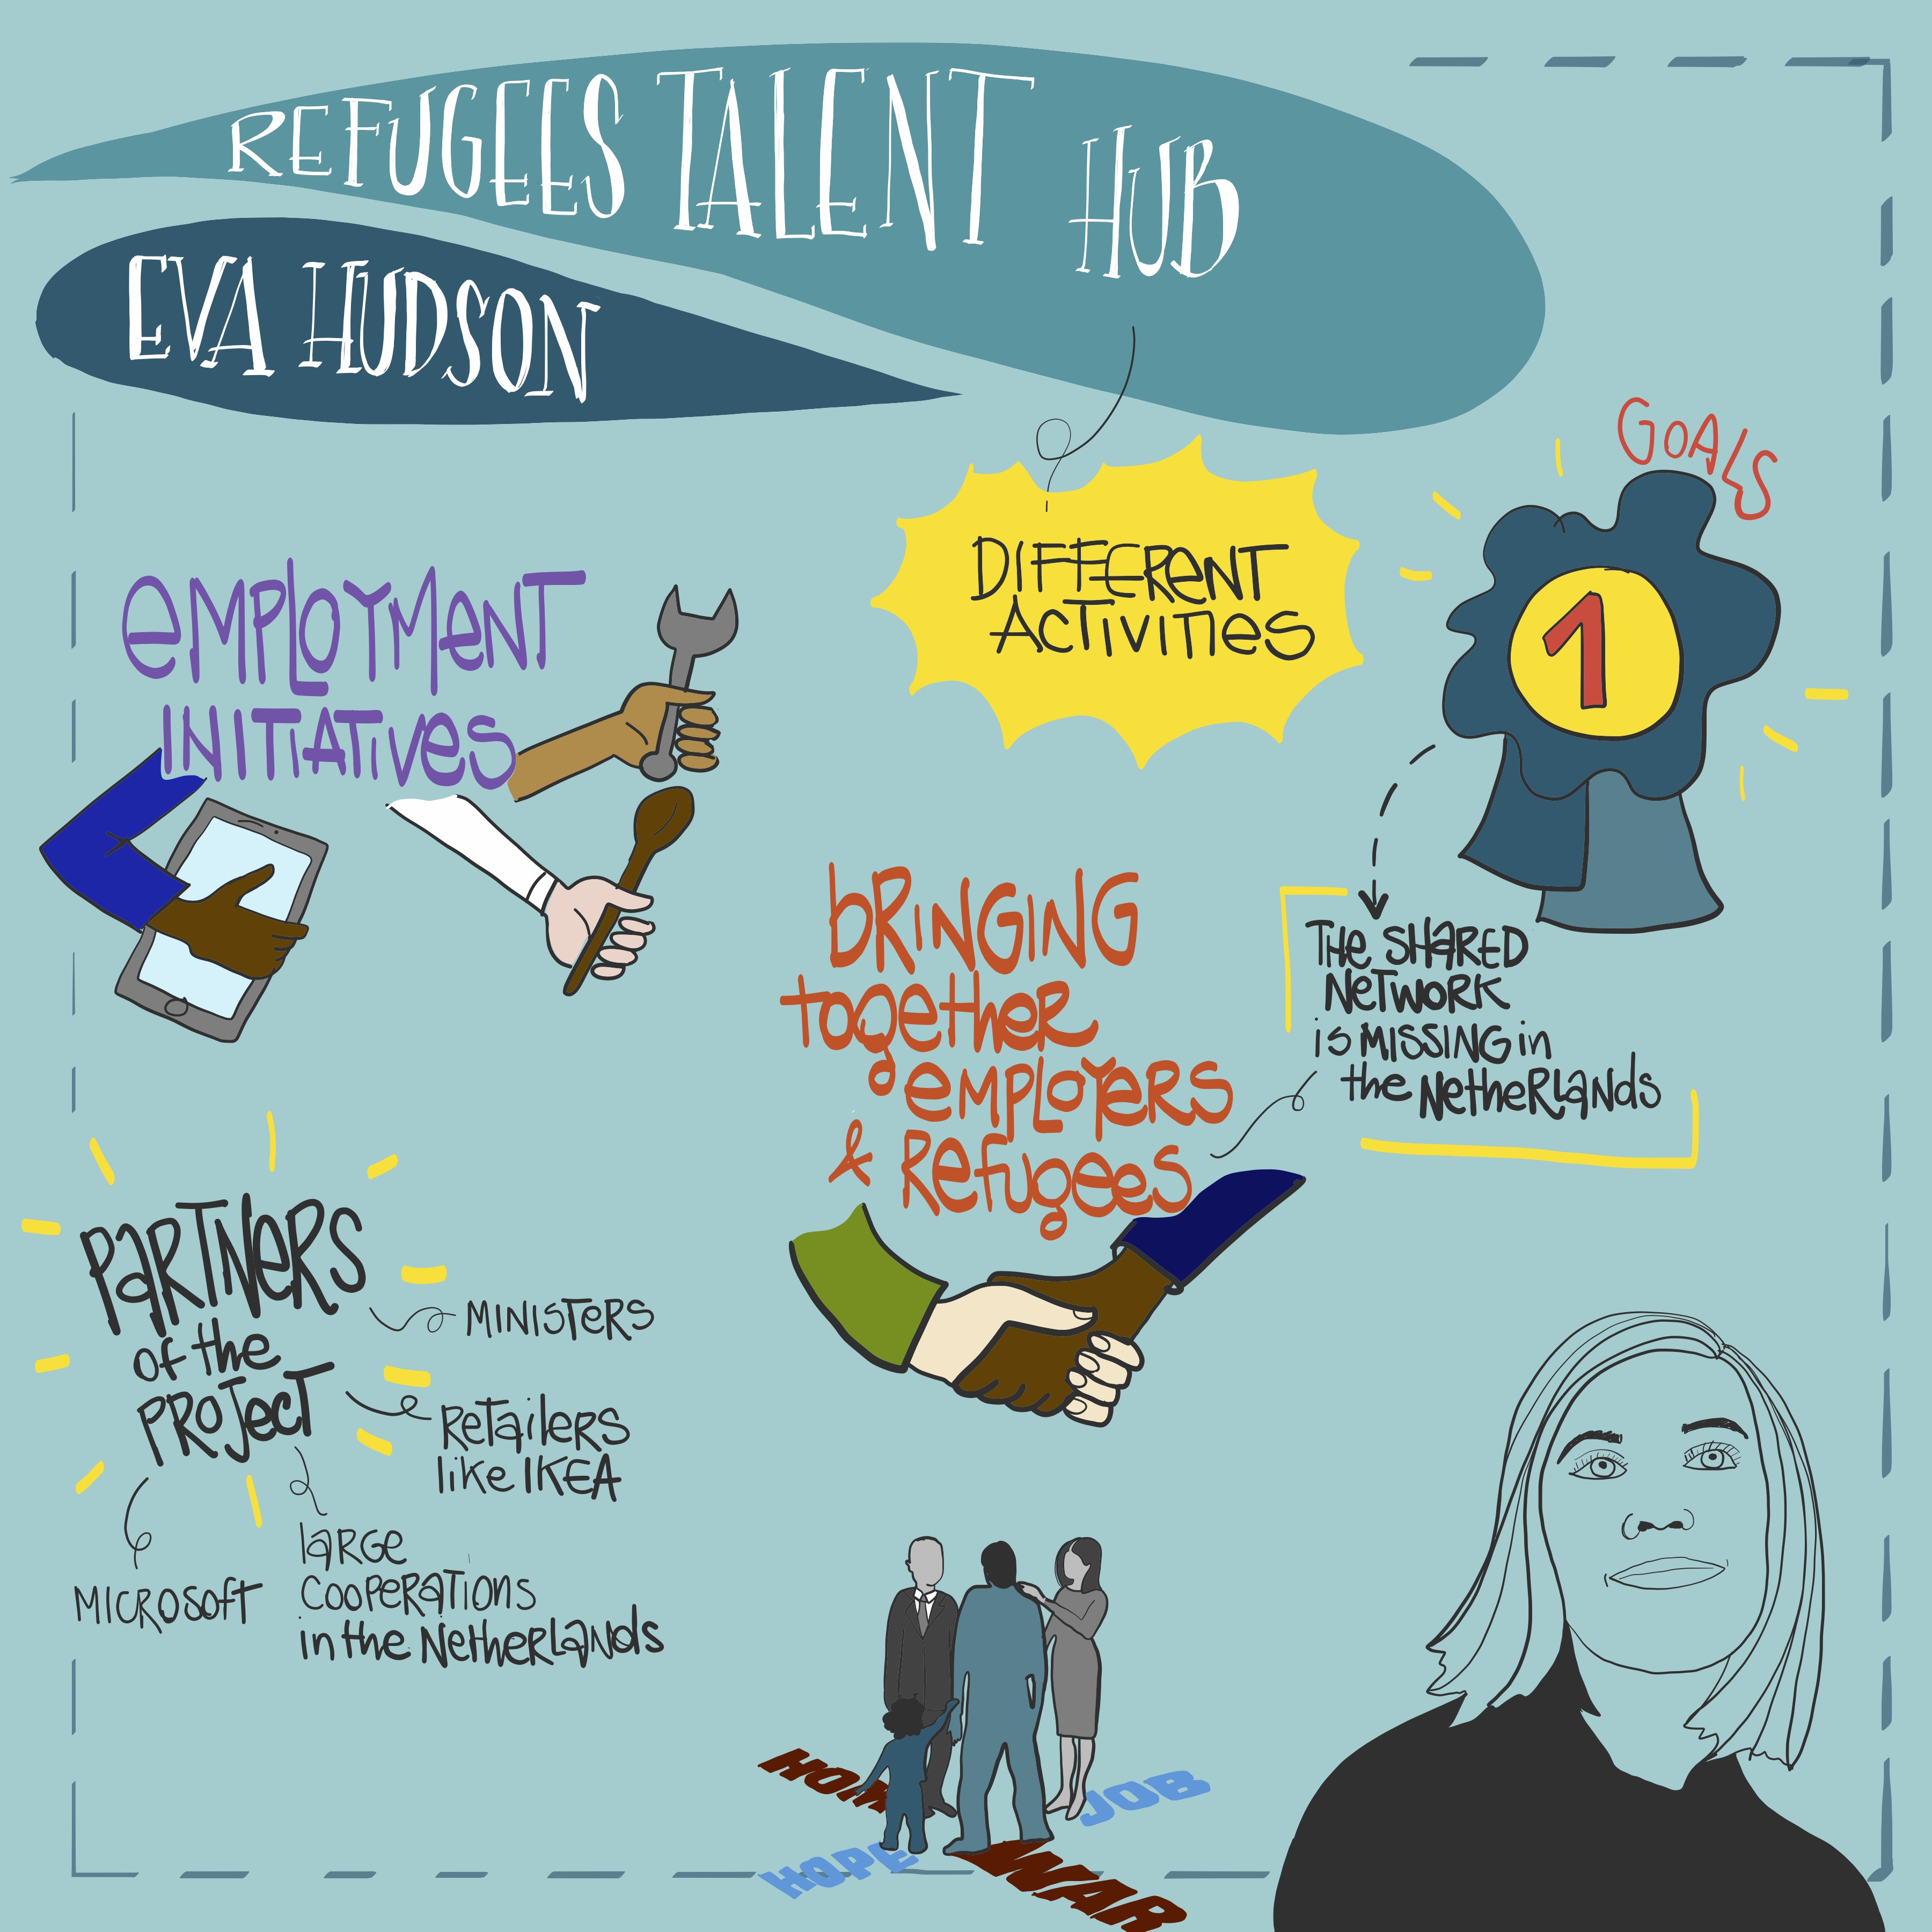 REFUGEES TALENT HUB
EVA HUDSON
GOALS
1
DIFFERENT
ACTIVITIES
EMPLOYMENT
INITIATIVES
BRINGING
together
EMPLOYERS
& Refugees
THE SHARED
NETWORK
is MISSING in
the NetheRlands
PARTNERS
of the
PROJECT
MINISTERS
Retailers
like IKEA
laRGe
COOPERATIONS
in the NetheRlands
MICROSOFT
JOB
HOPE
WAR